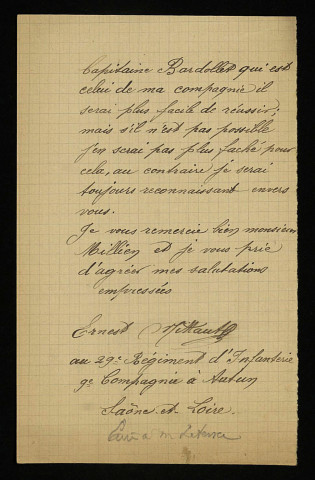 Capitaine Bardollet qui est
celui de ma compagnie il
serai plus facile de réussir;
mais s'il n'est pas possible
j'en serai pas plus faché pour
cela, au contraire je serai
toujours reconnaissant envers
vous.
Je vous remercie bien monsieur
Millien et je vous prie
d'agréer mes salutations
empressées
Ernest
au 29e Régiment d'Infanterie
9e Compagnie à Autun
Saône et Loire.